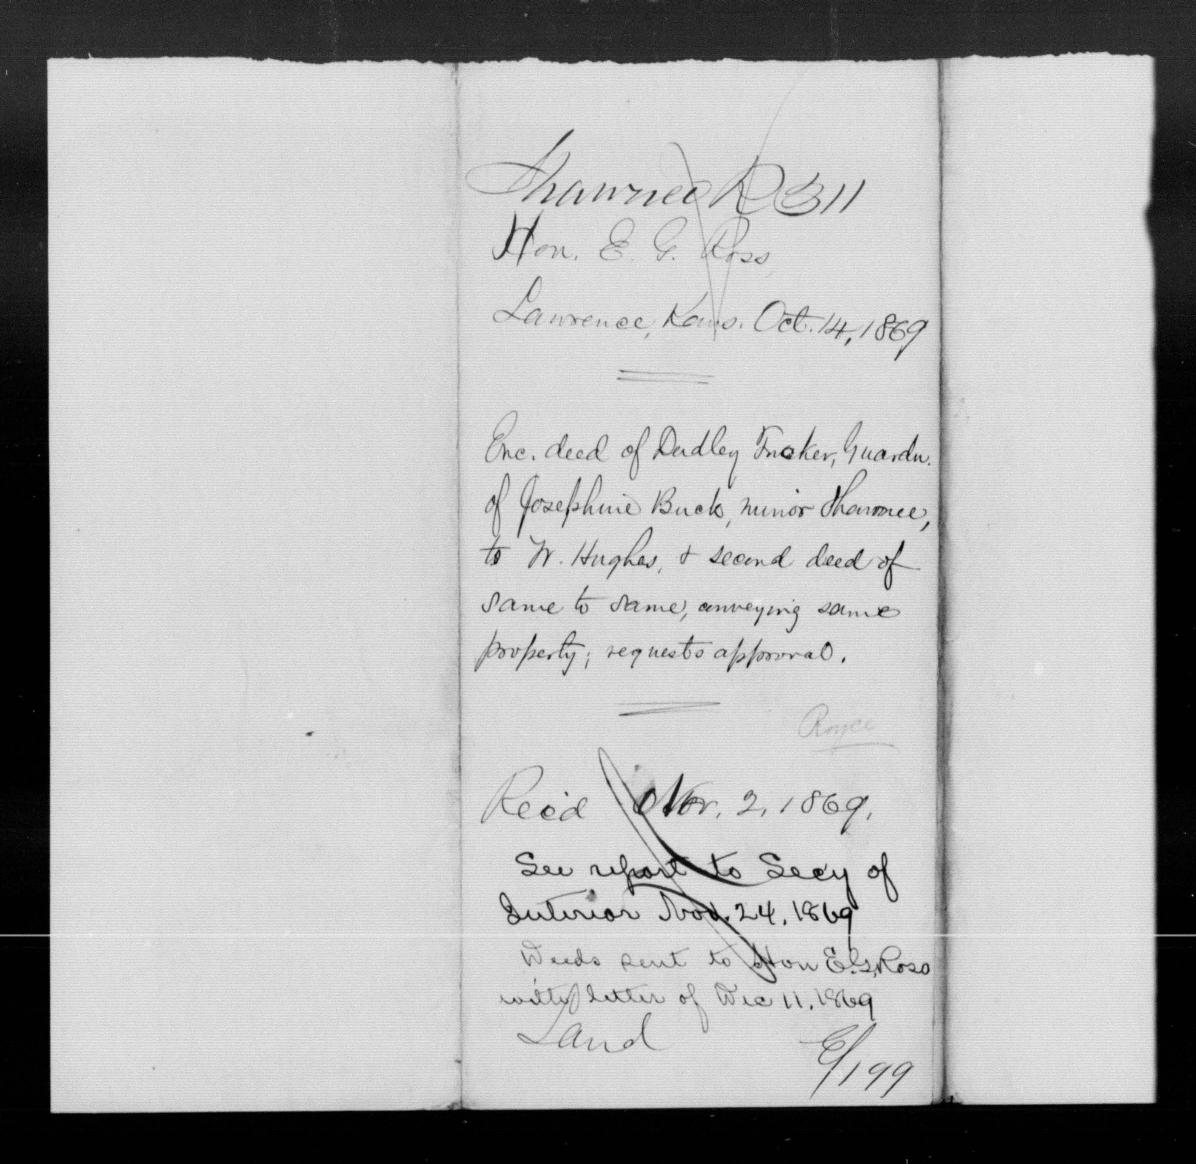 Shawnee R 311
Hon. E. G. Ross
Lawrence, Kans. Oct. 14, 1869
Enc. deed of Dudley Tucker, Guardn.
of Josephine Buck, minor Shawnee,
to W. Hughes, & second deed of
same to same, conveying same
property; requests approval.
Royce
Rec'd Nov. 2, 1869.
See report to Secy of
Interior Nov. 24, 1869
Deeds sent to Hon E. G. Ross
with letter of Dec 11. 1869
Land
E/199